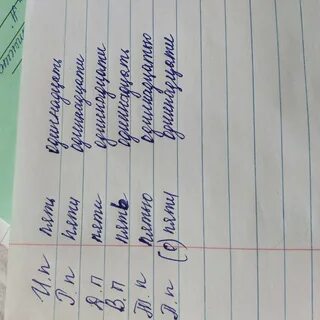 И.п пять одиннадцать
Р.п пяти одиннадцати
Д.п пяти одиннадцати
В.п пять одиннадцать
Т.п пятью одиннадцатью
П.п (о) пяти одиннадцати